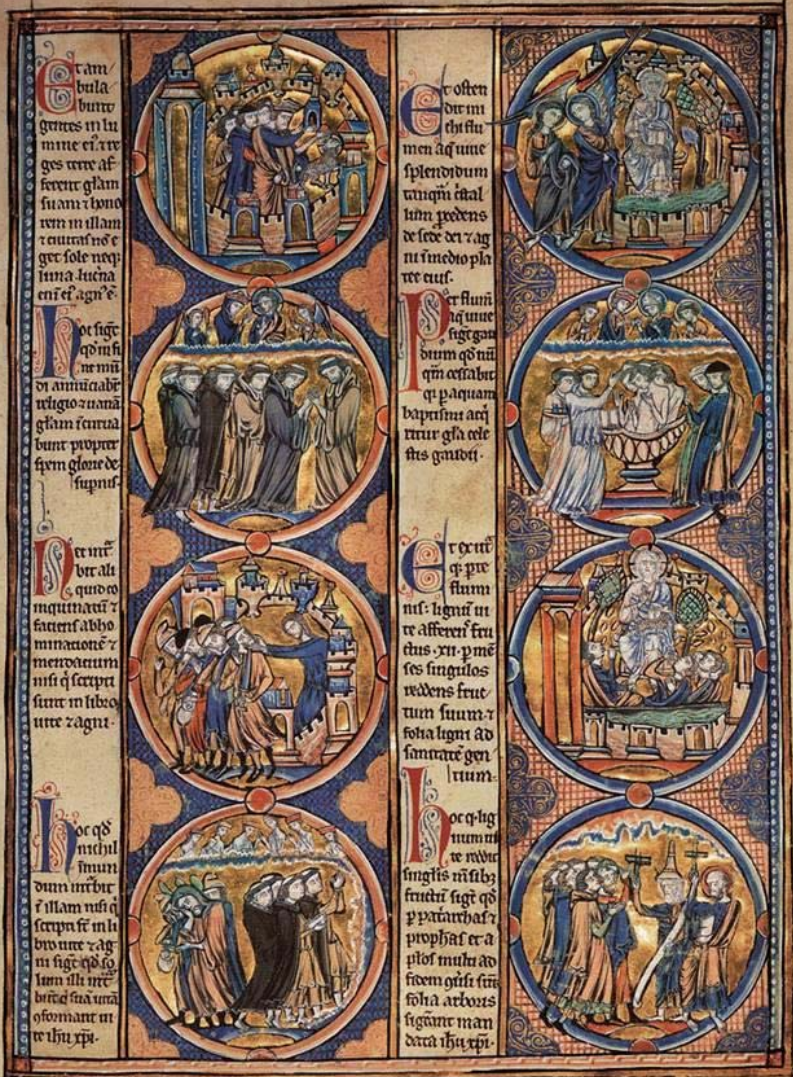 Et am
bula
bunt
gentes in lu
mine ei⁊ re
ges terre af
ferent gl̄am
suam ⁊ hono
rem in illam
⁊ ciuitas nō e
get sole neq̄
luna. lucna
eni ei agn' ē.
Hoc sig̅t
qd̄ in fi
ne mū
di annūciabt̄
religio
gl̄am
bunt propter
spem glorie de
supnis.
Nec int̄
bit ali
quid co
inquinatū ⁊
faciens abho
minationē ⁊
mendacium
nisi q̄ scripti
sunt in libro
uite ⁊ agni.
Hoc qd̄
nichil
īmun
dum int̄bit
ī illam nisi q̄
scripti st̄ in li
bro uite ⁊ ag
ni sig̅t qd̄ so
lum illi int̄
būt q̄ suā uitā
ɔformant ui
te ih̄u xp̄i.
Et osten
dit mi
chi flu
men aq̄ uiue
splendidum
tanq̄m cristal
lum p̄cedens
de sede dei ⁊ ag
ni ī medio pla
tee eius.
Per flum̄
aq̄ uiue
sig̅t gau
dium qd̄ nū
q̄m cessabit
q̄ p aquam
baptismi acq̄
ritur gl̄a cele
stis gaudii.
Et ex ut̄
q̄ pte
flumi
nis: lignū ui
te afferens fru
ctus .xii. p mē
ses singulos
reddens fruc
tum suum ⁊
folia ligni ad
sanitatē gen
tium.
Hoc q̄ lig
num ui
te reddit
singlis m̄sib;
fructū sig̅t qd̄
p patriarchas ⁊
prophas et a
p̄los multi ad
fidem
folia arboris
sig̅ant man
data ih̄u xp̄i.